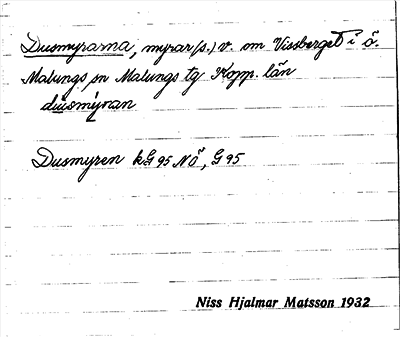 Dusmyrarna, myrar (s.) v. om Vissberget i ö.
Malungs sn Malungs tg Kopp. län
dùsmýran
Dusmyren kG 95 NÖ, G 95
Niss Hjalmar Matsson 1932